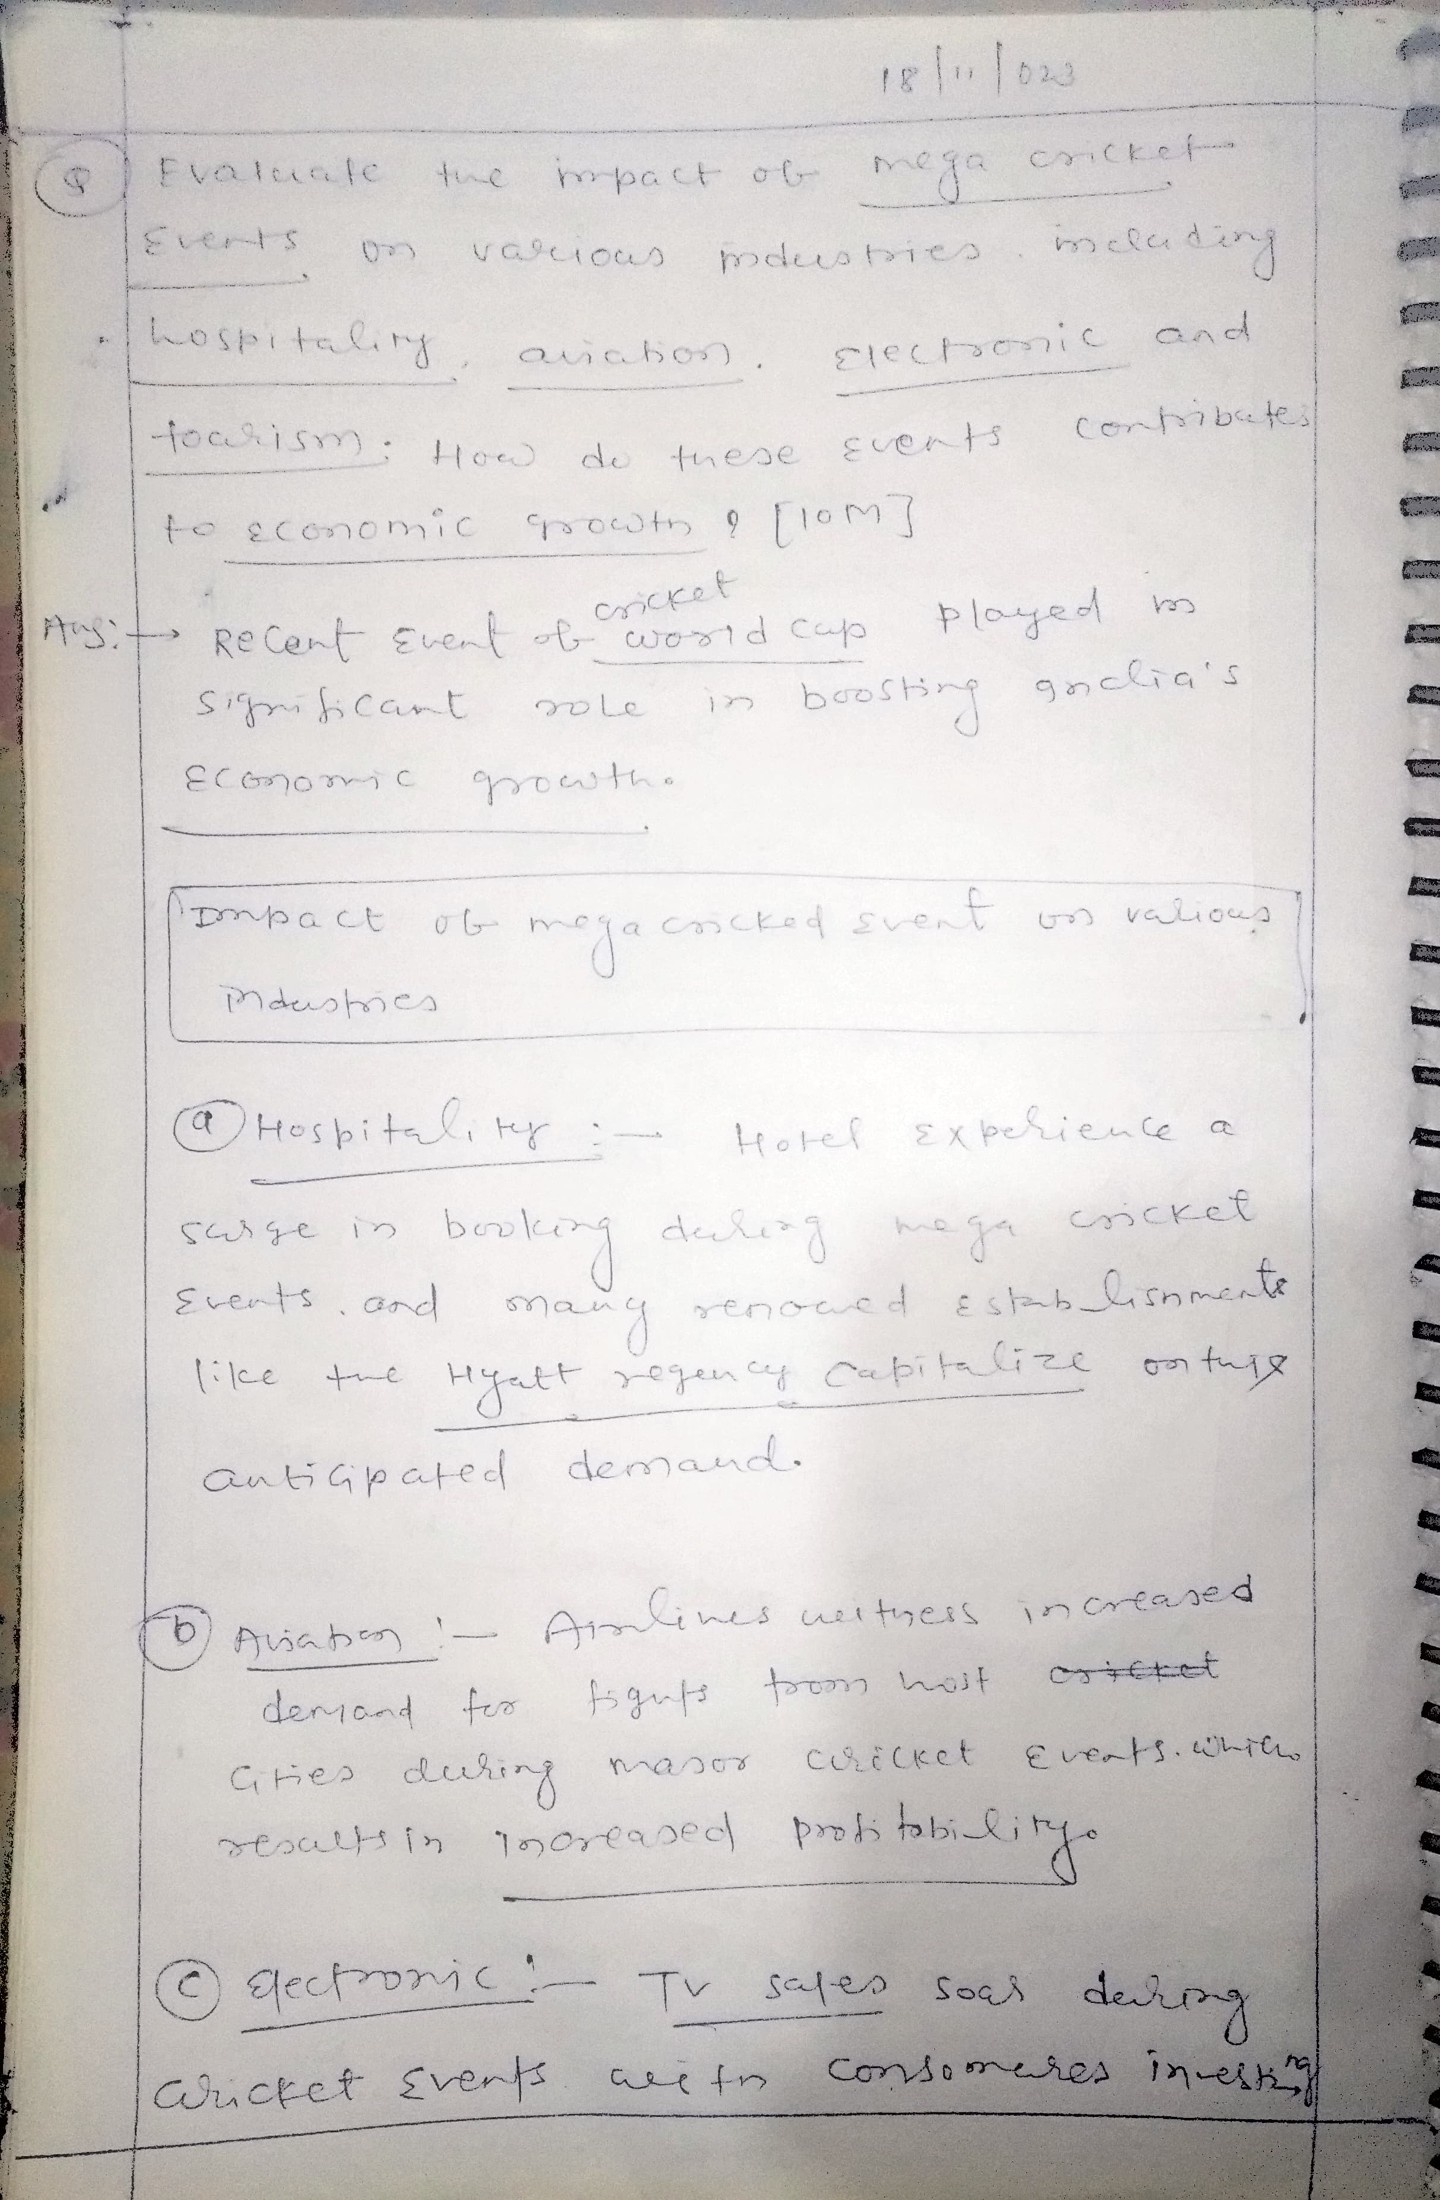 18/11/023
Q Evaluate the impact of mega cricket
Events on various industries. including
hospitality, aviation. Electronic and
tourism. How do these events contributes
to economic growth ? [10M]
Ans: → Recent Event of cricket world cup played in
significant role in boosting India's
Economic growth.
Impact of mega cricked event on various
industries
(a) Hospitality :- Hotel experience a
surge in booking during mega cricket
Events. and many renowed establishments
like the Hyatt regency capitalize on this
anticipated demand.
(b) Aviation :- Airlines witness increased
demand for fights from host cricket
cities during major cricket events. which
results in increased profitability.
(c) Electronic :- TV sales soar during
cricket Events with consomures investing